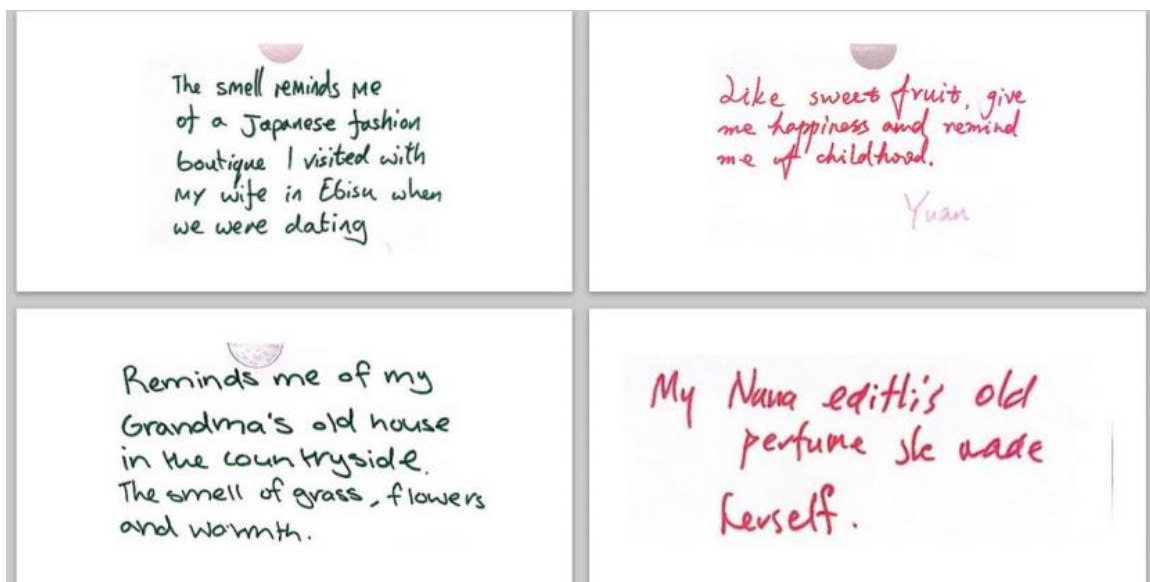 The smell reminds me
of a Japanese fashion
boutique I visited with
my wife in Ebisu when
we were dating
Like sweet fruit, give
me happiness and remind
me of childhood.
Yuan
Reminds me of my
Grandma's old house
in the countryside.
The smell of grass, flowers
and warmth.
My Nana edith's old
perfume she made
herself.